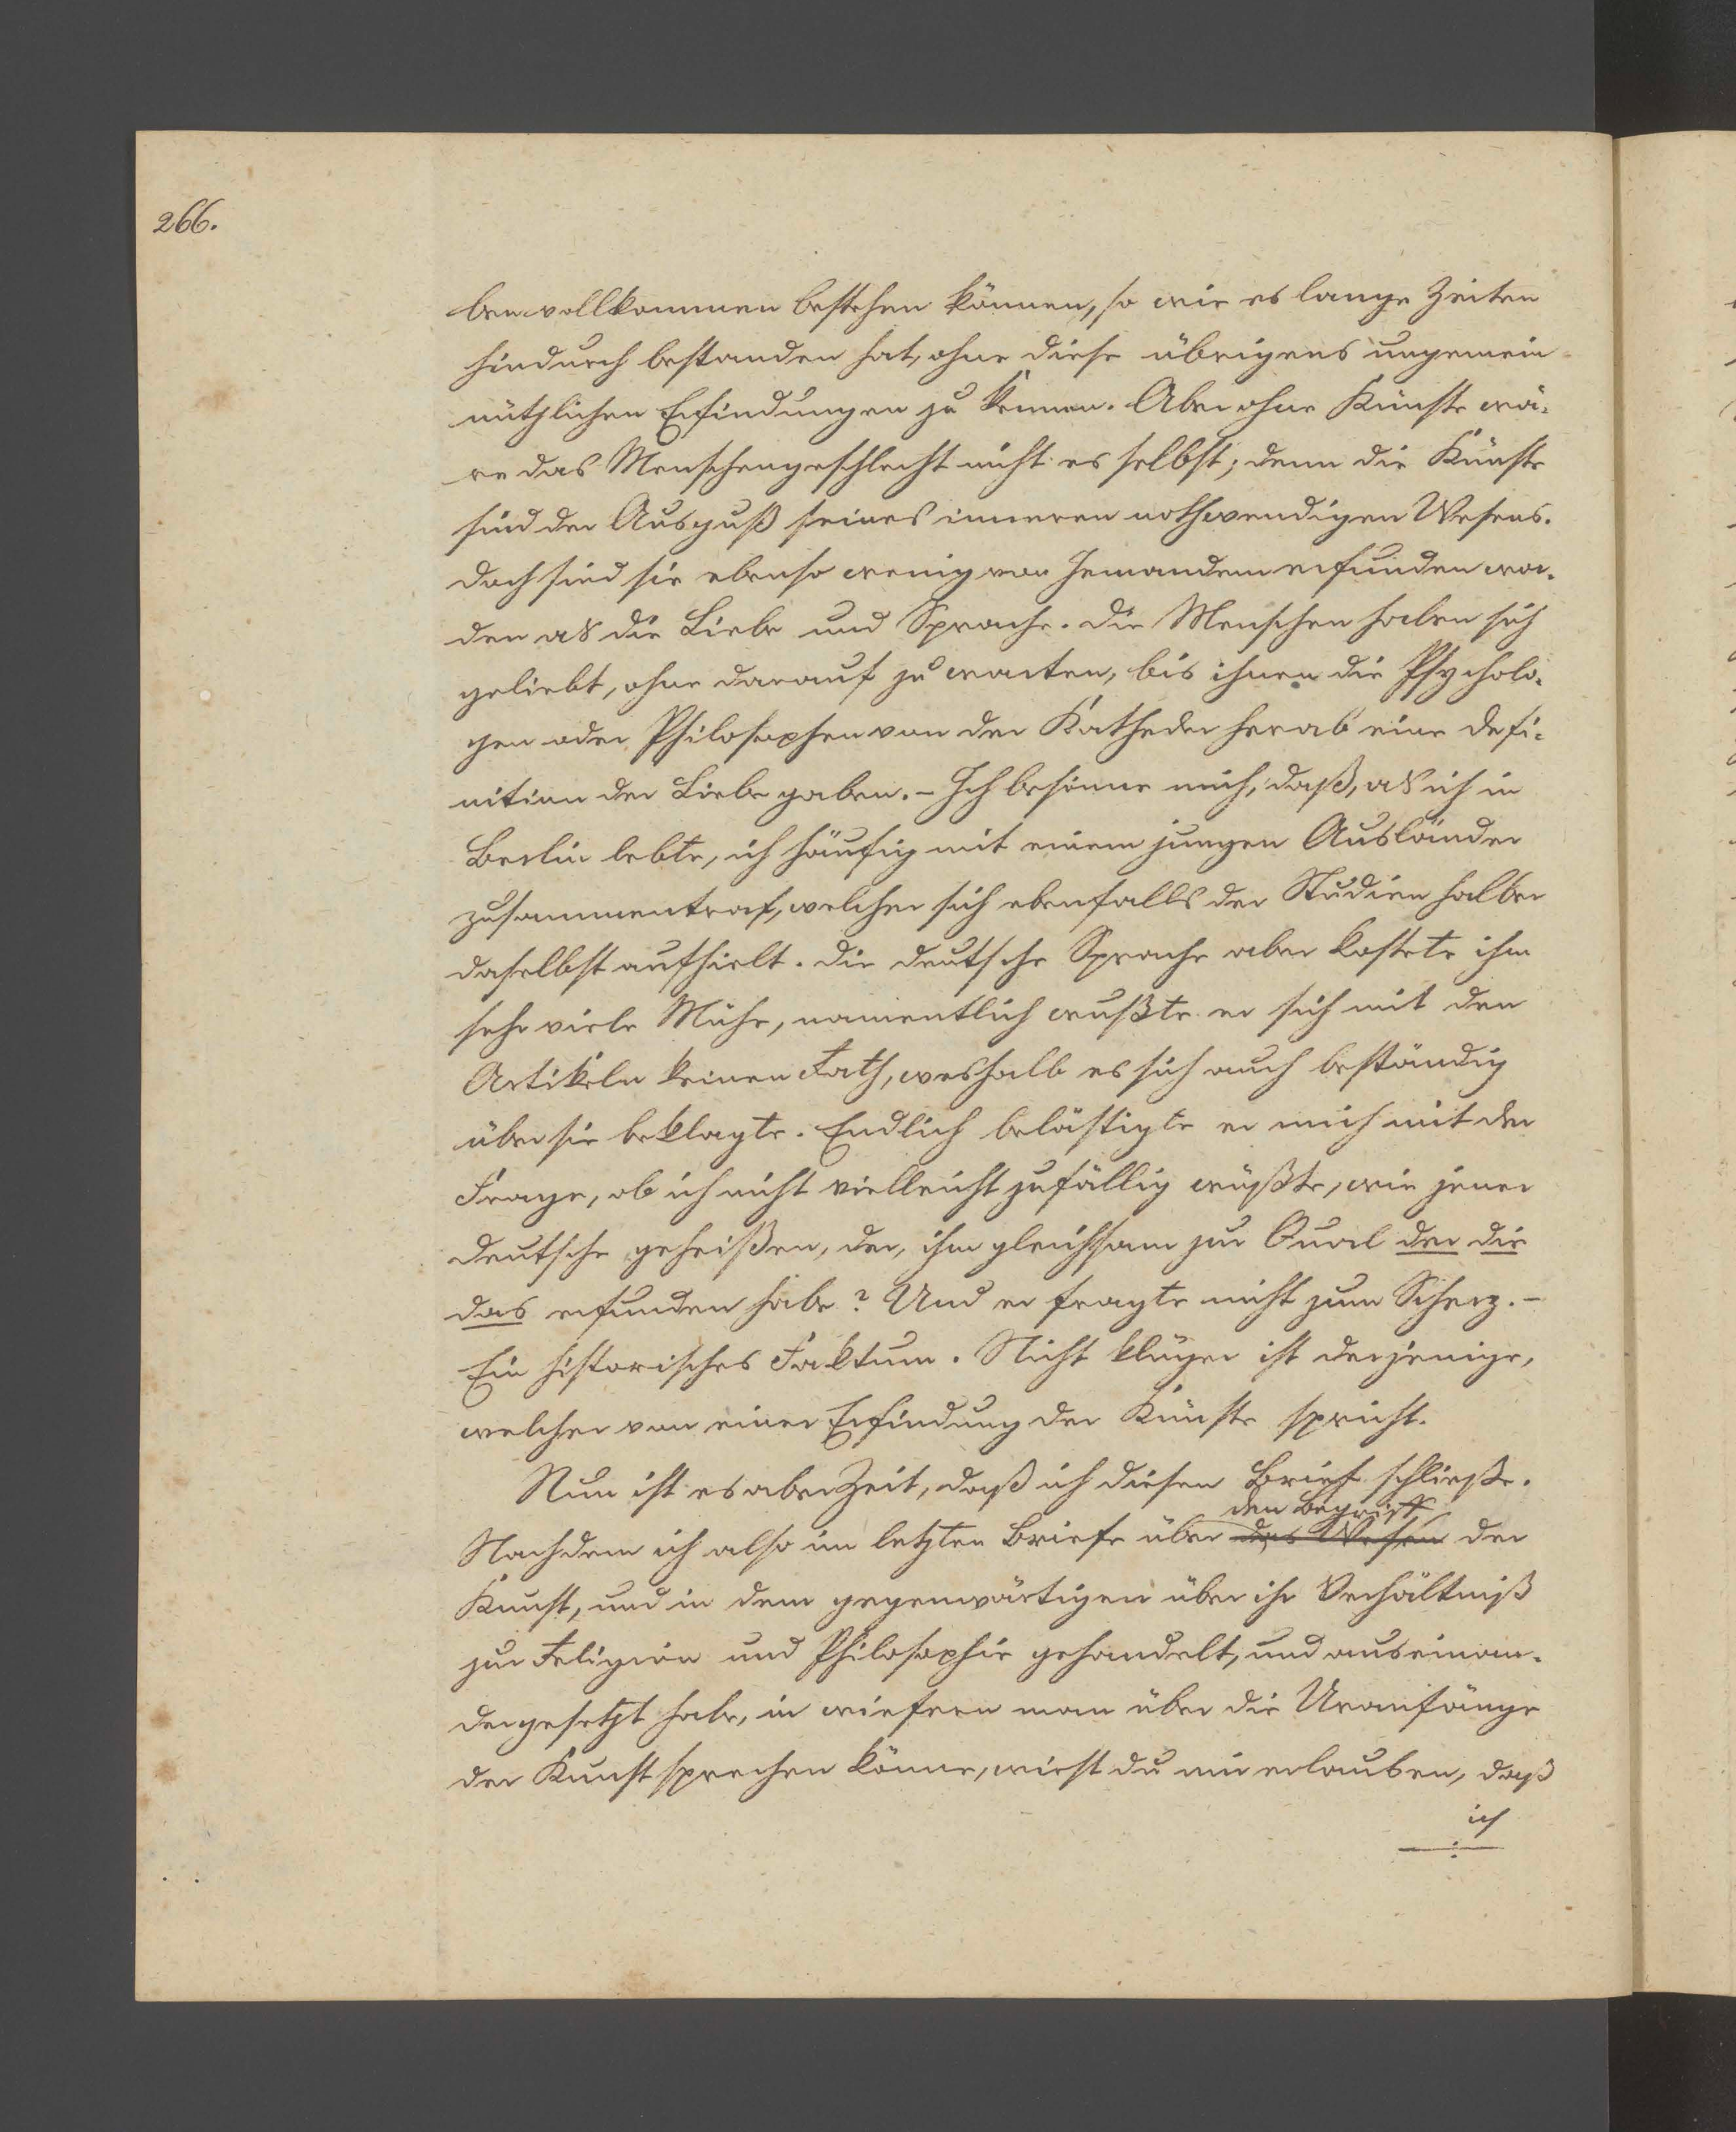 266.
ben vollkommen bestehen können, so wie es lange Zeiten
hindurch bestanden hat, ohne diese übrigens ungemein
nützlichen Erfindungen zu kennen. Aber ohne Künste wä-
re das Menschengeschlecht nicht es selbst; denn die Künste
sind der Ausguß seines inneren nothwendigen Wesens.
Doch sind sie ebenso wenig von Jemandem erfunden wor-
den als die Liebe und Sprache. Die Menschen haben sich
geliebt, ohne darauf zu warten, bis ihnen die Psycholo-
gen oder Philosophen von der Katheder herab eine Defi-
nition der Liebe gaben. – Ich besinne mich, daß, als ich in
Berlin lebte, ich häufig mit einem jungen Ausländer
zusammentraf, welcher sich ebenfalls der Studien halber
daselbst aufhielt. Die deutsche Sprache aber kostete ihm
sehr viele Mühe, namentlich wußte er sich mit den
Artikeln keinen Rath, weshalb es sich auch beständig
über sie beklagte. Endlich belästigte er mich mit der
Frage, ob ich nicht vielleicht zufällig wüßte, wie jener
Deutsche geheißen, der, ihm gleichsam zur Qual der die
das erfunden habe? Und er fragte nicht zum Scherz. –
Ein historisches Faktum. Nicht klüger ist derjenige,
welcher von einer Erfindung der Künste spricht.
Nun ist es aber Zeit, daß ich diesen Brief schließe.
den Begriff
Nachdem ich also im letzten Briefe über das Wesen der
Kunst, und in dem gegenwärtigen über ihr Verhältniß
zur Religion und Philosophie gehandelt, und auseinan-
dergesetzt habe, in wiefern man über die Uranfänge
der Kunst sprechen könne, wirst du mir erlauben, daß
ich